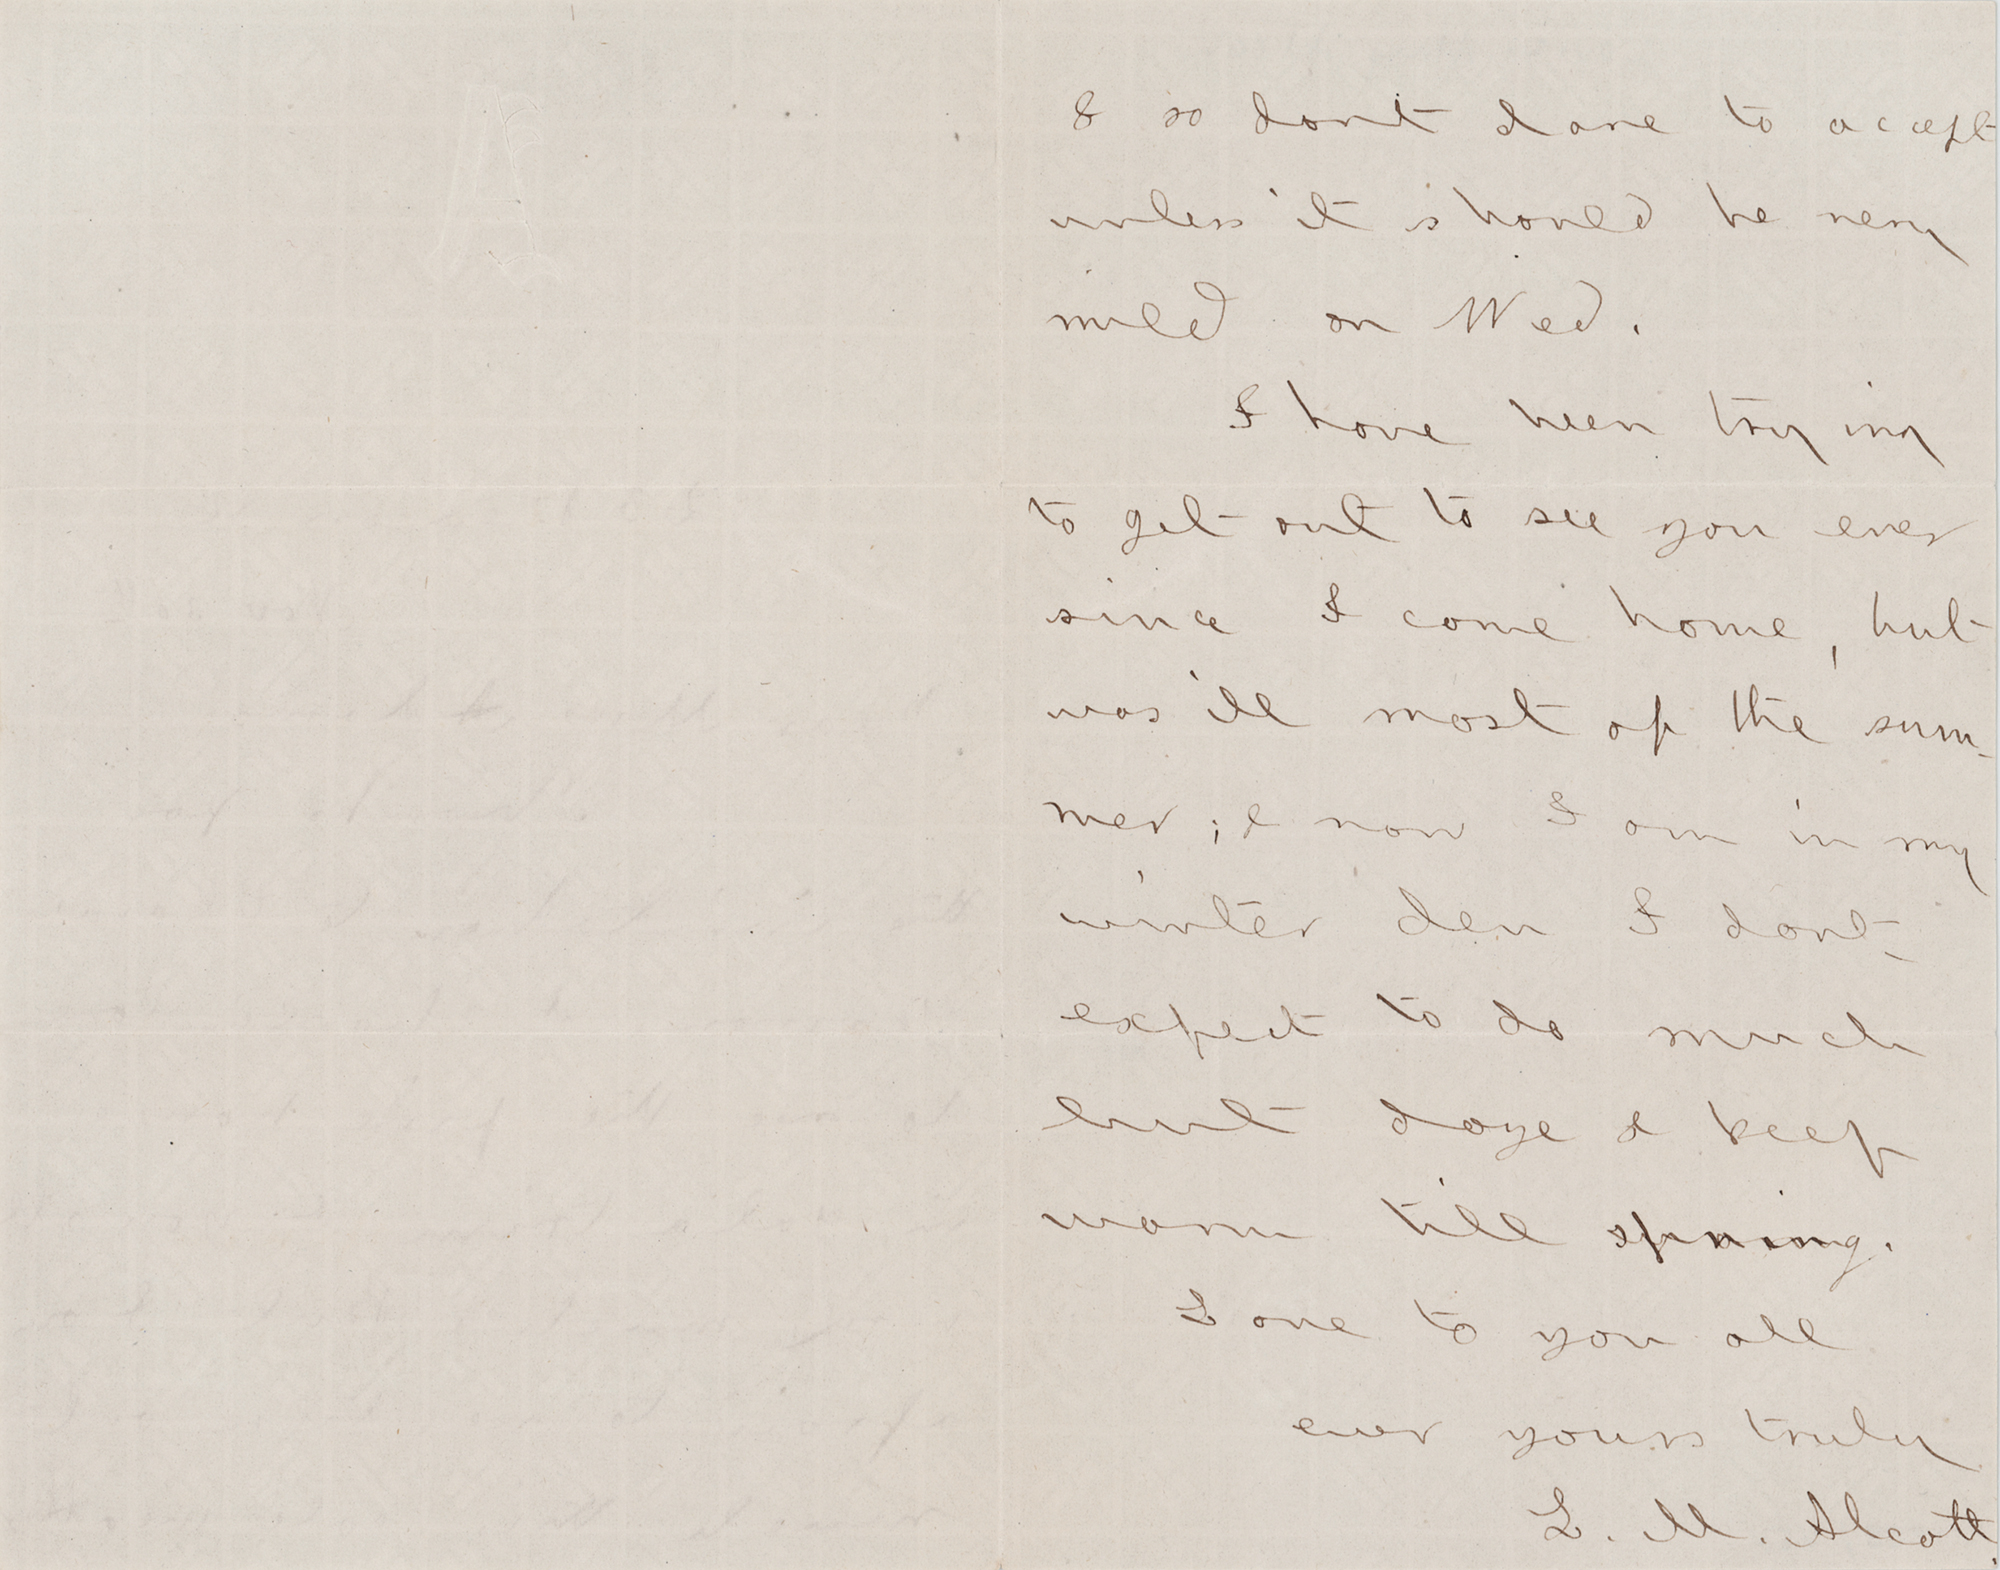 & so dont dare to accept
unless it should be very
mild on Wed.
I have been trying
to get out to see you ever
since I came home, but
was ill most of the sum-
mer; & now I am in my
winter den I dont
expect to do much
but doze & keep
warm till spring.
Love to you all
ever yours truly
L. M. Alcott.